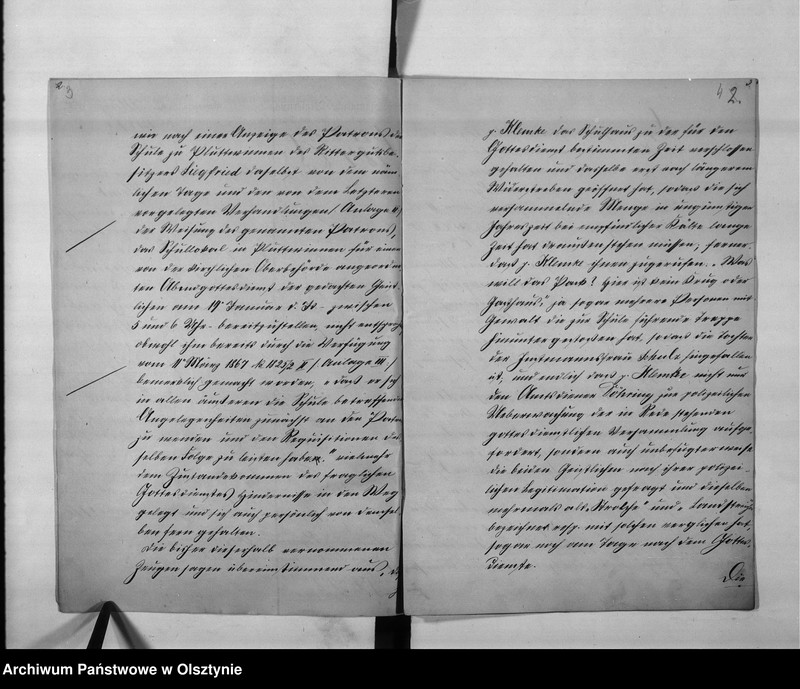 3
wie nach einer Anzeige des Patrons der
Schule zu Plutwinnen des Rittergutsbe-
sitzers Siegfried daselbst von dem näm-
lichen Tage und den von dem Letzteren
vorgelegten Verhandlungen (Anlage II)
der Weisung des genannten Patrons,
das Schullokal in Plutwinnen für einen
von der kirchlichen Oberbehörde angeordne-
ten Abendgottesdienst der gedachten Geist-
lichen am 14 Januar d. Js. zwischen
5 und 6 Uhr bereitzustellen, nicht entsprochen
obwohl ihm bereits durch die Verfügung
vom 11 März 1867 № 1125/2 II (Anlage III)
bemerklich gemacht worden, "daß er sich
in allen äußeren die Schule betreffenden
Angelegenheiten zunächst an den Patron
zu wenden und den Requisitionen des-
selben Folge zu leisten habe," vielmehr
dem Zustandekommen des fraglichen
Gottesdienstes Hindernisse in den Weg
gelegt und sich auch persönlich von demsel-
ben fern gehalten.
Die bisher dieserhalb vernommenen
Zeugen sagen übereinstimmend aus,
4 2.
p. Klemke das Schulhaus zu der für den
Gottesdienst bestimmten Zeit verschlossen
gehalten und dasselbe erst nach längerem
Widerstreben geöffnet hat, sodass die sich
versammelnde Menge in ungünstiger
Jahreszeit bei empfindlicher Kälte lange
Zeit hat draußen stehen müssen; ferner
daß p. Klemke ihnen zugerufen: "Was
will das Pack! Hier ist kein Krug oder
Gasthaus," ja sogar mehrere Personen mit
Gewalt die zur Schule führende Treppe
hinunter gestoßen hat, sodass die Tochter
der Instmannsfrau Schulz hingefallen
ist, und endlich daß p. Klemke nicht nur
den Amtsdiener Döhring zur polizeilichen
Ueberwachung der in Rede stehenden
gottesdienstlichen Versammlung aufge-
fordert, sondern auch unbefugterweise
die beiden Geistlichen nach ihrer polizei-
lichen Legitimation gefragt und dieselben
mehrmals als "Strolche" und "Landstreicher"
bezeichnet resp. mit solchen verglichen hat,
sogar noch am Tage nach dem Gottes-
dienste.
Die
Archiwum Państwowe w Olsztynie